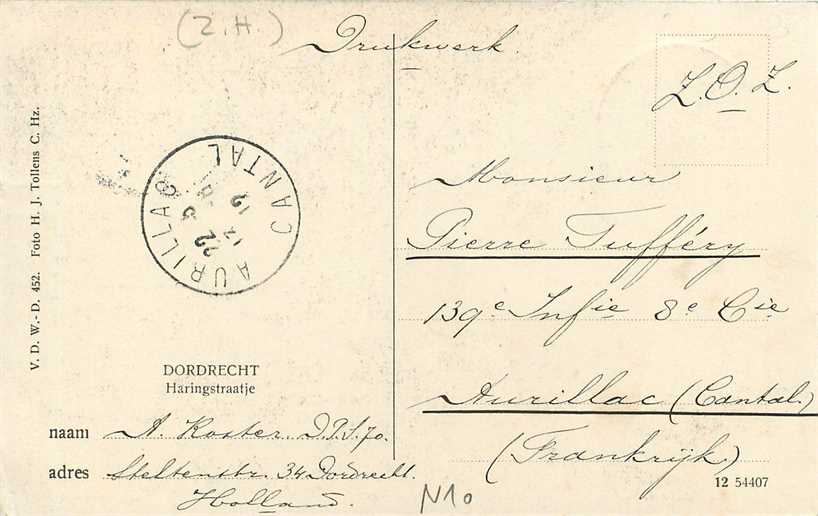 (Z.H.)
Drukwerk.
Z.O.Z.
V. D. W.-D. 452. Foto H. J. Tollens C. Hz.
AURILLAC CANTAL
22
12
Monsieur
Pierre Tufféry
139e Infie 8e Cie
Aurillac (Cantal)
(Frankrijk)
DORDRECHT
Haringstraatje
naam A. Koster. D.P.S.70.
adres Steltenstr. 34 Dordrecht.
Holland.
N10
12 54407